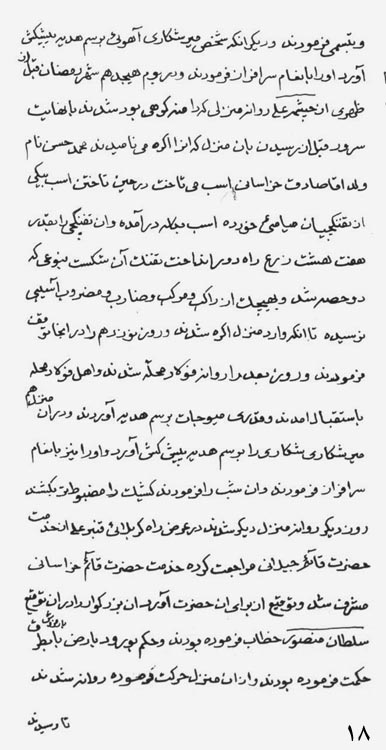 و تبسمی فرمودند و دیگر آنکه شخص میرشکاری آهوئی برسم هدیه پیشکش
آورد او را بانعام سرافراز فرمودند و در یوم هیجدهم شهر رمضان قبل از
ظهری از چشمه علی روانه منزلی که در میر کوهی بود شدند با نهایت
سرور قبل از رسیدن بان منزل که انرا اکره می نامیدند محمد حسن نام
ولد اقا صادق خراسانی اسب می تاخت در حین تاختن اسب بیکی
از تفنگچیان صیامی خورده اسب بکله در آمده وان تفنگچی را بقدر
هفت هشت ذرع راه دور انداخت تفنگ آن شکست بنوعی که
دو حصه شد و بهیچیک از راکب و مرکب و ضارب و مضروب آسیبی
نرسیده تا آنکه وارد منزل اکره شدند و روز نوزدهم را در انجا توقف
فرمودند و روز بعد را روانه فولاد محله شدند و اهل فولاد محله
باستقبال امدند و قدری میوجات برسم هدیه آوردند و در ان منزل هم
میرشکاری شکاری را برسم هدیه پیش کش آورد و او را نیز بانعام
سرافراز فرمودند وان شب را فرمودند کشیک را مضبوط تر بکشند
روز دیگر روانه منزل دیگر شدند در عرض راه کربلائی قنبر علی از خدمت
حضرت قائم جیلانی مراجعت کرده خدمت حضرت قائم خراسانی
مشرف شد و توقیع از برای ان حضرت آورد ان بزرگوار را در ان توقیع
سلطان منصور خطاب فرموده بودند و حکم بورود بارض
حکمت فرموده بودند و از ان منزل حرکت فرموده روانه شدند
تا رسیدند
۱۸